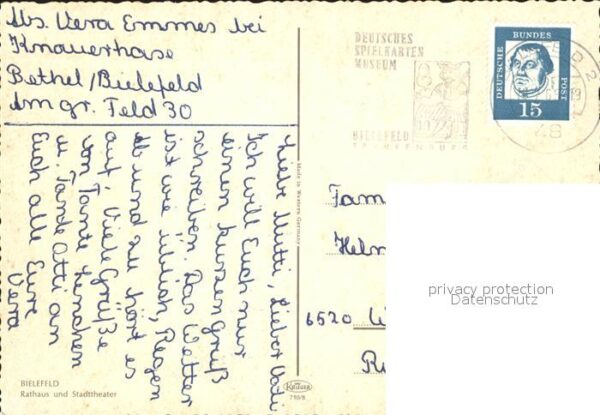 Abs. Vera Emmes bei
Knauerhase
Bethel/Bielefeld
Am gr. Feld 30
Liebe Mutti, Lieber Vati
Ich will Euch nur
einen kurzen Gruß
schreiben. Das Wetter
ist wie üblich, Regen
ab und zu hört es
auf. Viele Grüße
von Tante Lenchen
u. Tante Otti an
Euch alle Eure
Vera
BIELEFELD
Rathaus und Stadttheater
Made in Western Germany
Krüger
790/8
DEUTSCHES
SPIELKARTEN
MUSEUM
BIELEFELD
DEUTSCHE BUNDESPOST
15
48
Fam
Helm
6520 W
R
privacy protection
Datenschutz